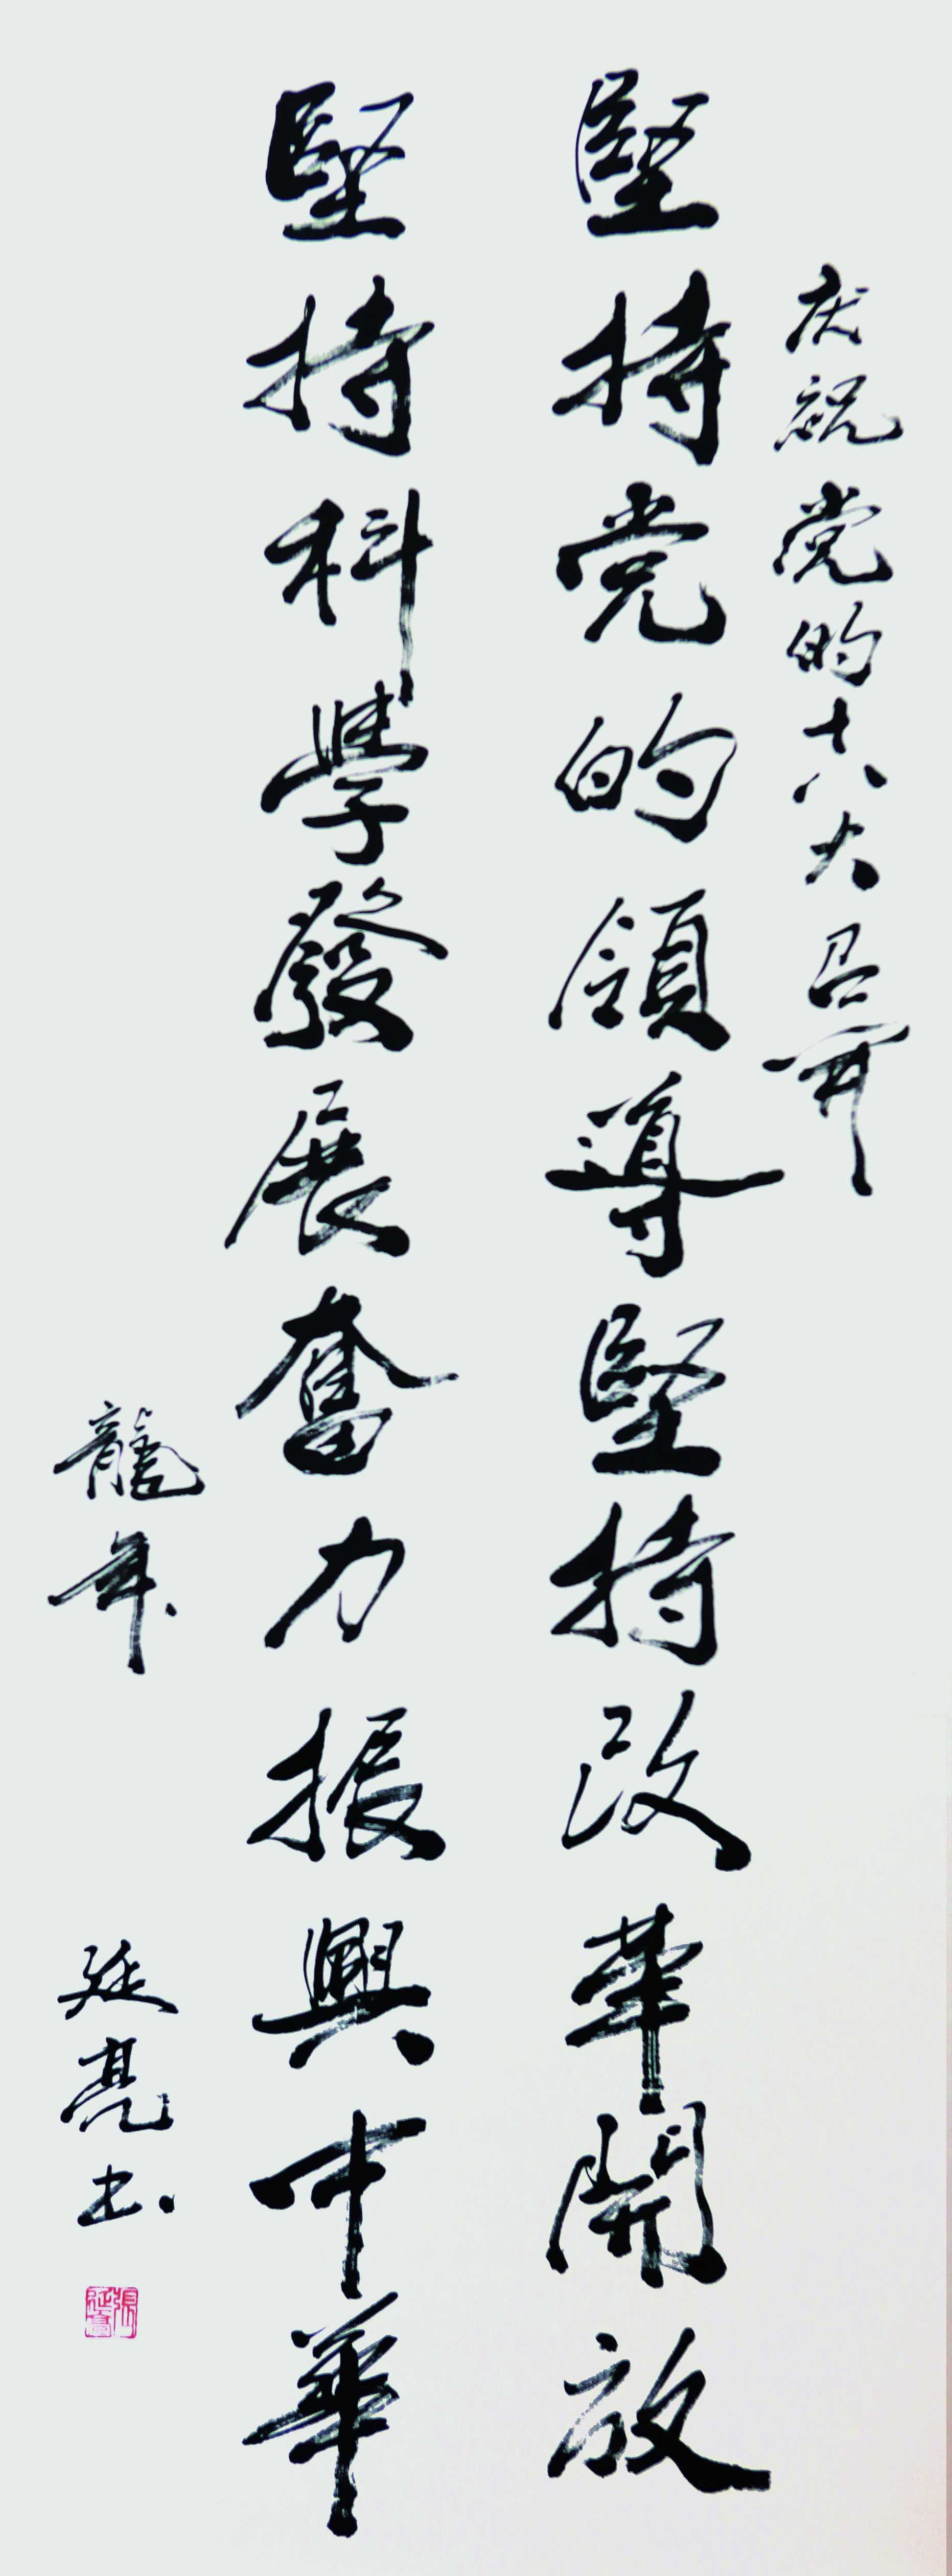 庆祝党的十八大召開
堅持党的領導堅持改革開放
堅持科學發展奮力振興中華
龍年
延亮书
張延亮